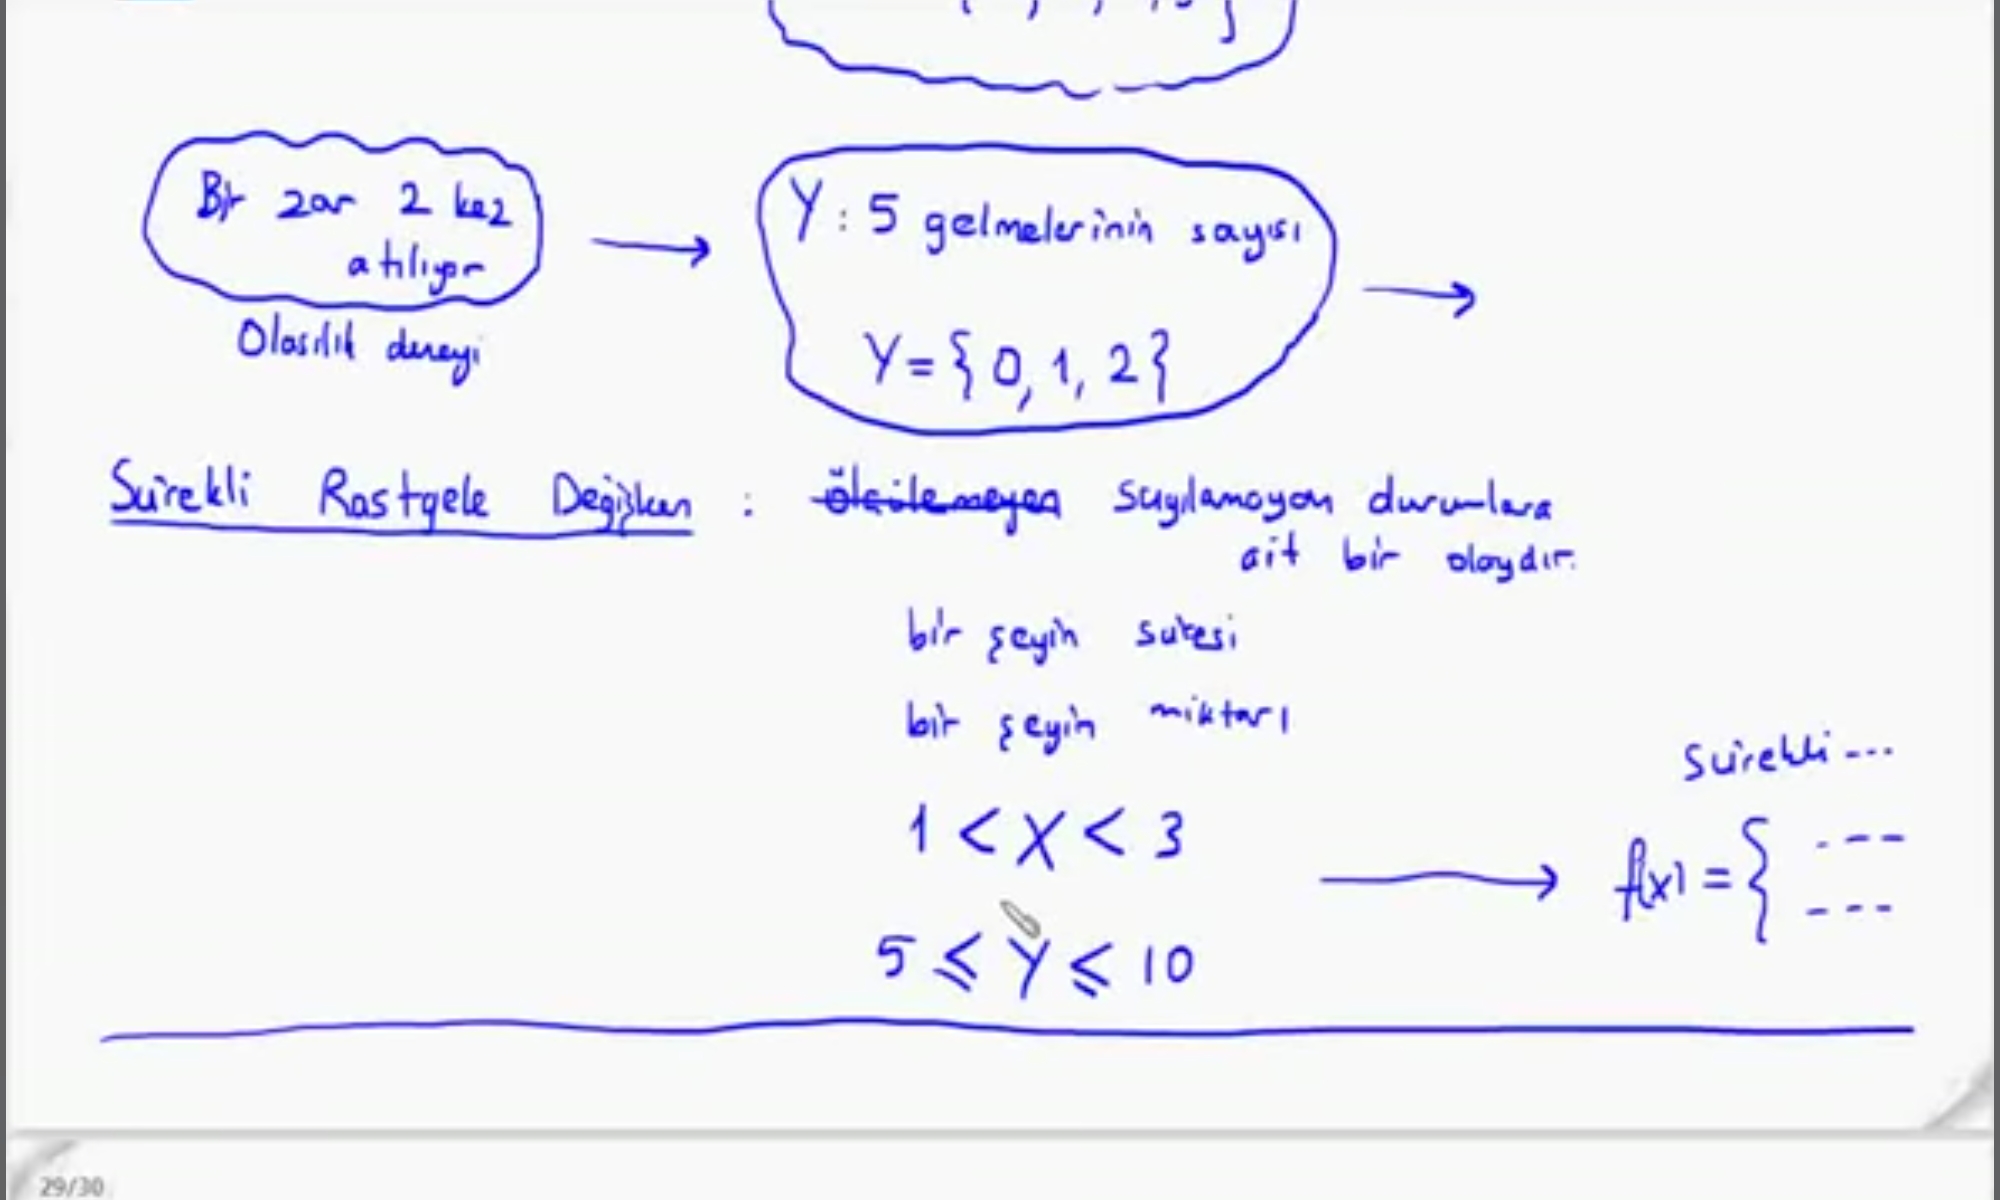 Bir zar 2 kez
atılıyor
Olasılık deneyi
Y : 5 gelmelerinin sayısı
Y = { 0, 1, 2 }
Sürekli Rastgele Değişken : ölçülemeyen sayılamayan durumlara
ait bir olaydır.
bir şeyin süresi
bir şeyin miktarı
sürekli ---
1 < X < 3
f(x) = { ---
---
5 ≤ Y ≤ 10
29/30